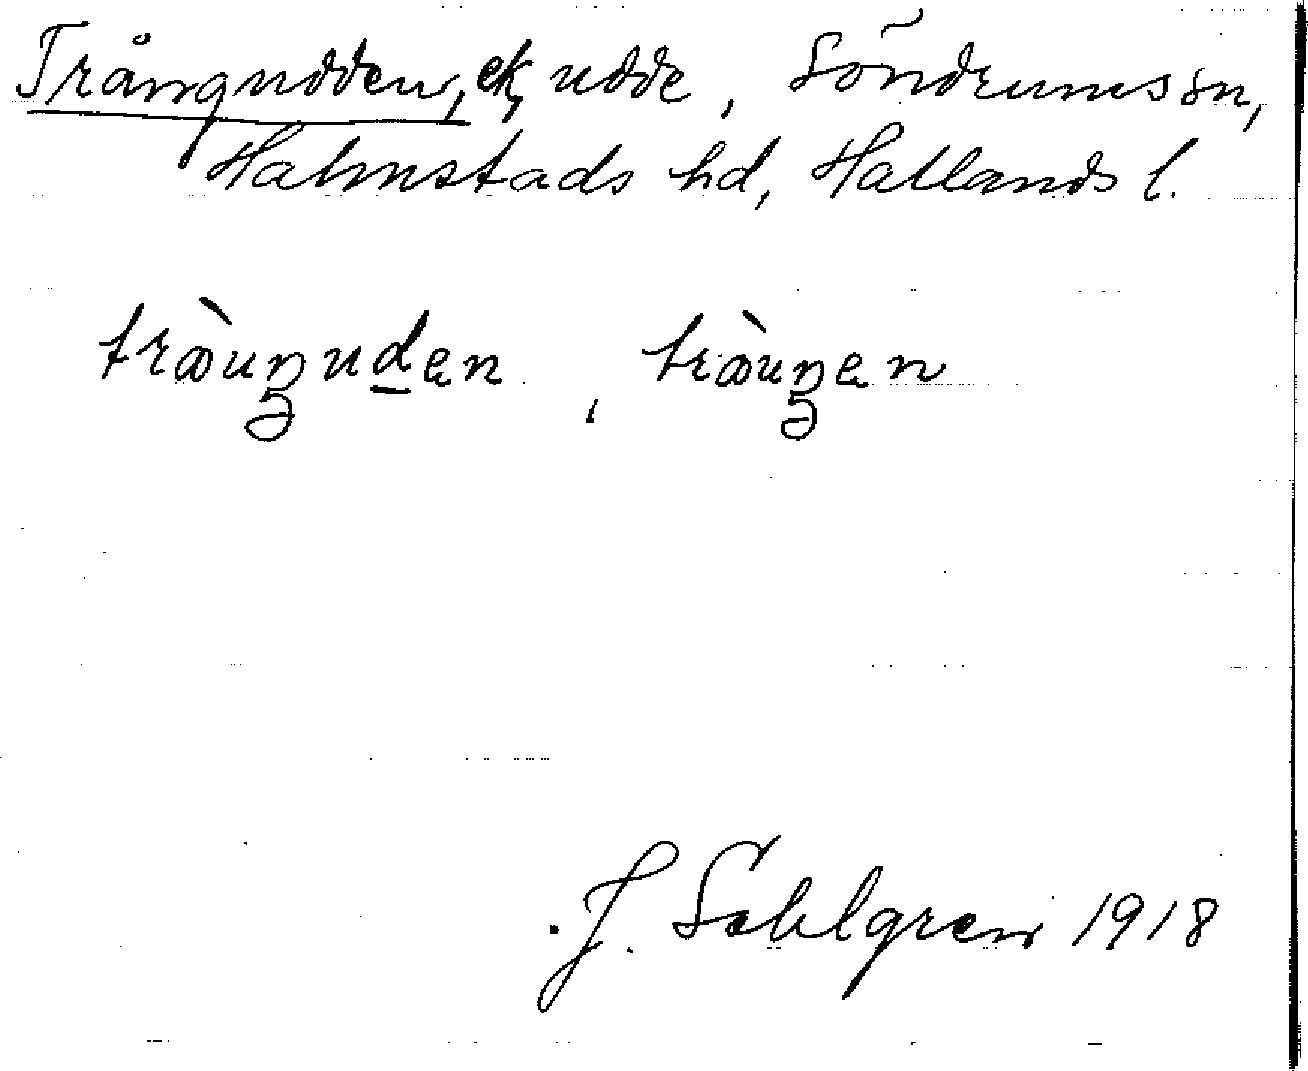 Trångudden, ek, udde, Söndrums sn,
Halmstads hd, Hallands l.
trὰuŋuden, trὰuŋen
J. Sahlgren 1918